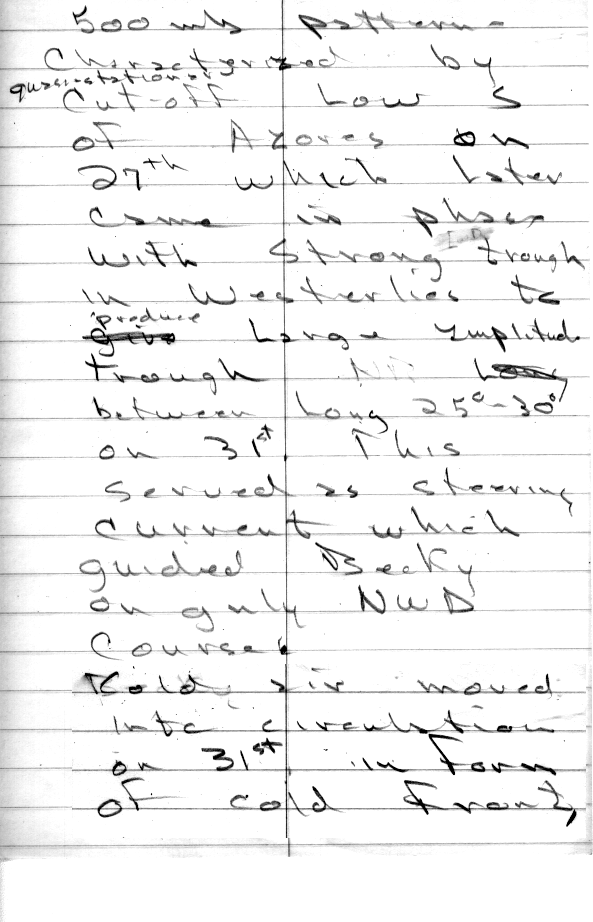 500 mb pattern -
Characterized by
quasistationary
Cut-off Low S
of Azores on
27th which later
came in phase
with strong trough
in Westerlies to
produce
give Large amplitude
trough
between Long 25°-30°
on 31st. This
served as steering
current which
guided Becky
on
course.
Cold air moved
into circulation
on 31st in form
of cold front,